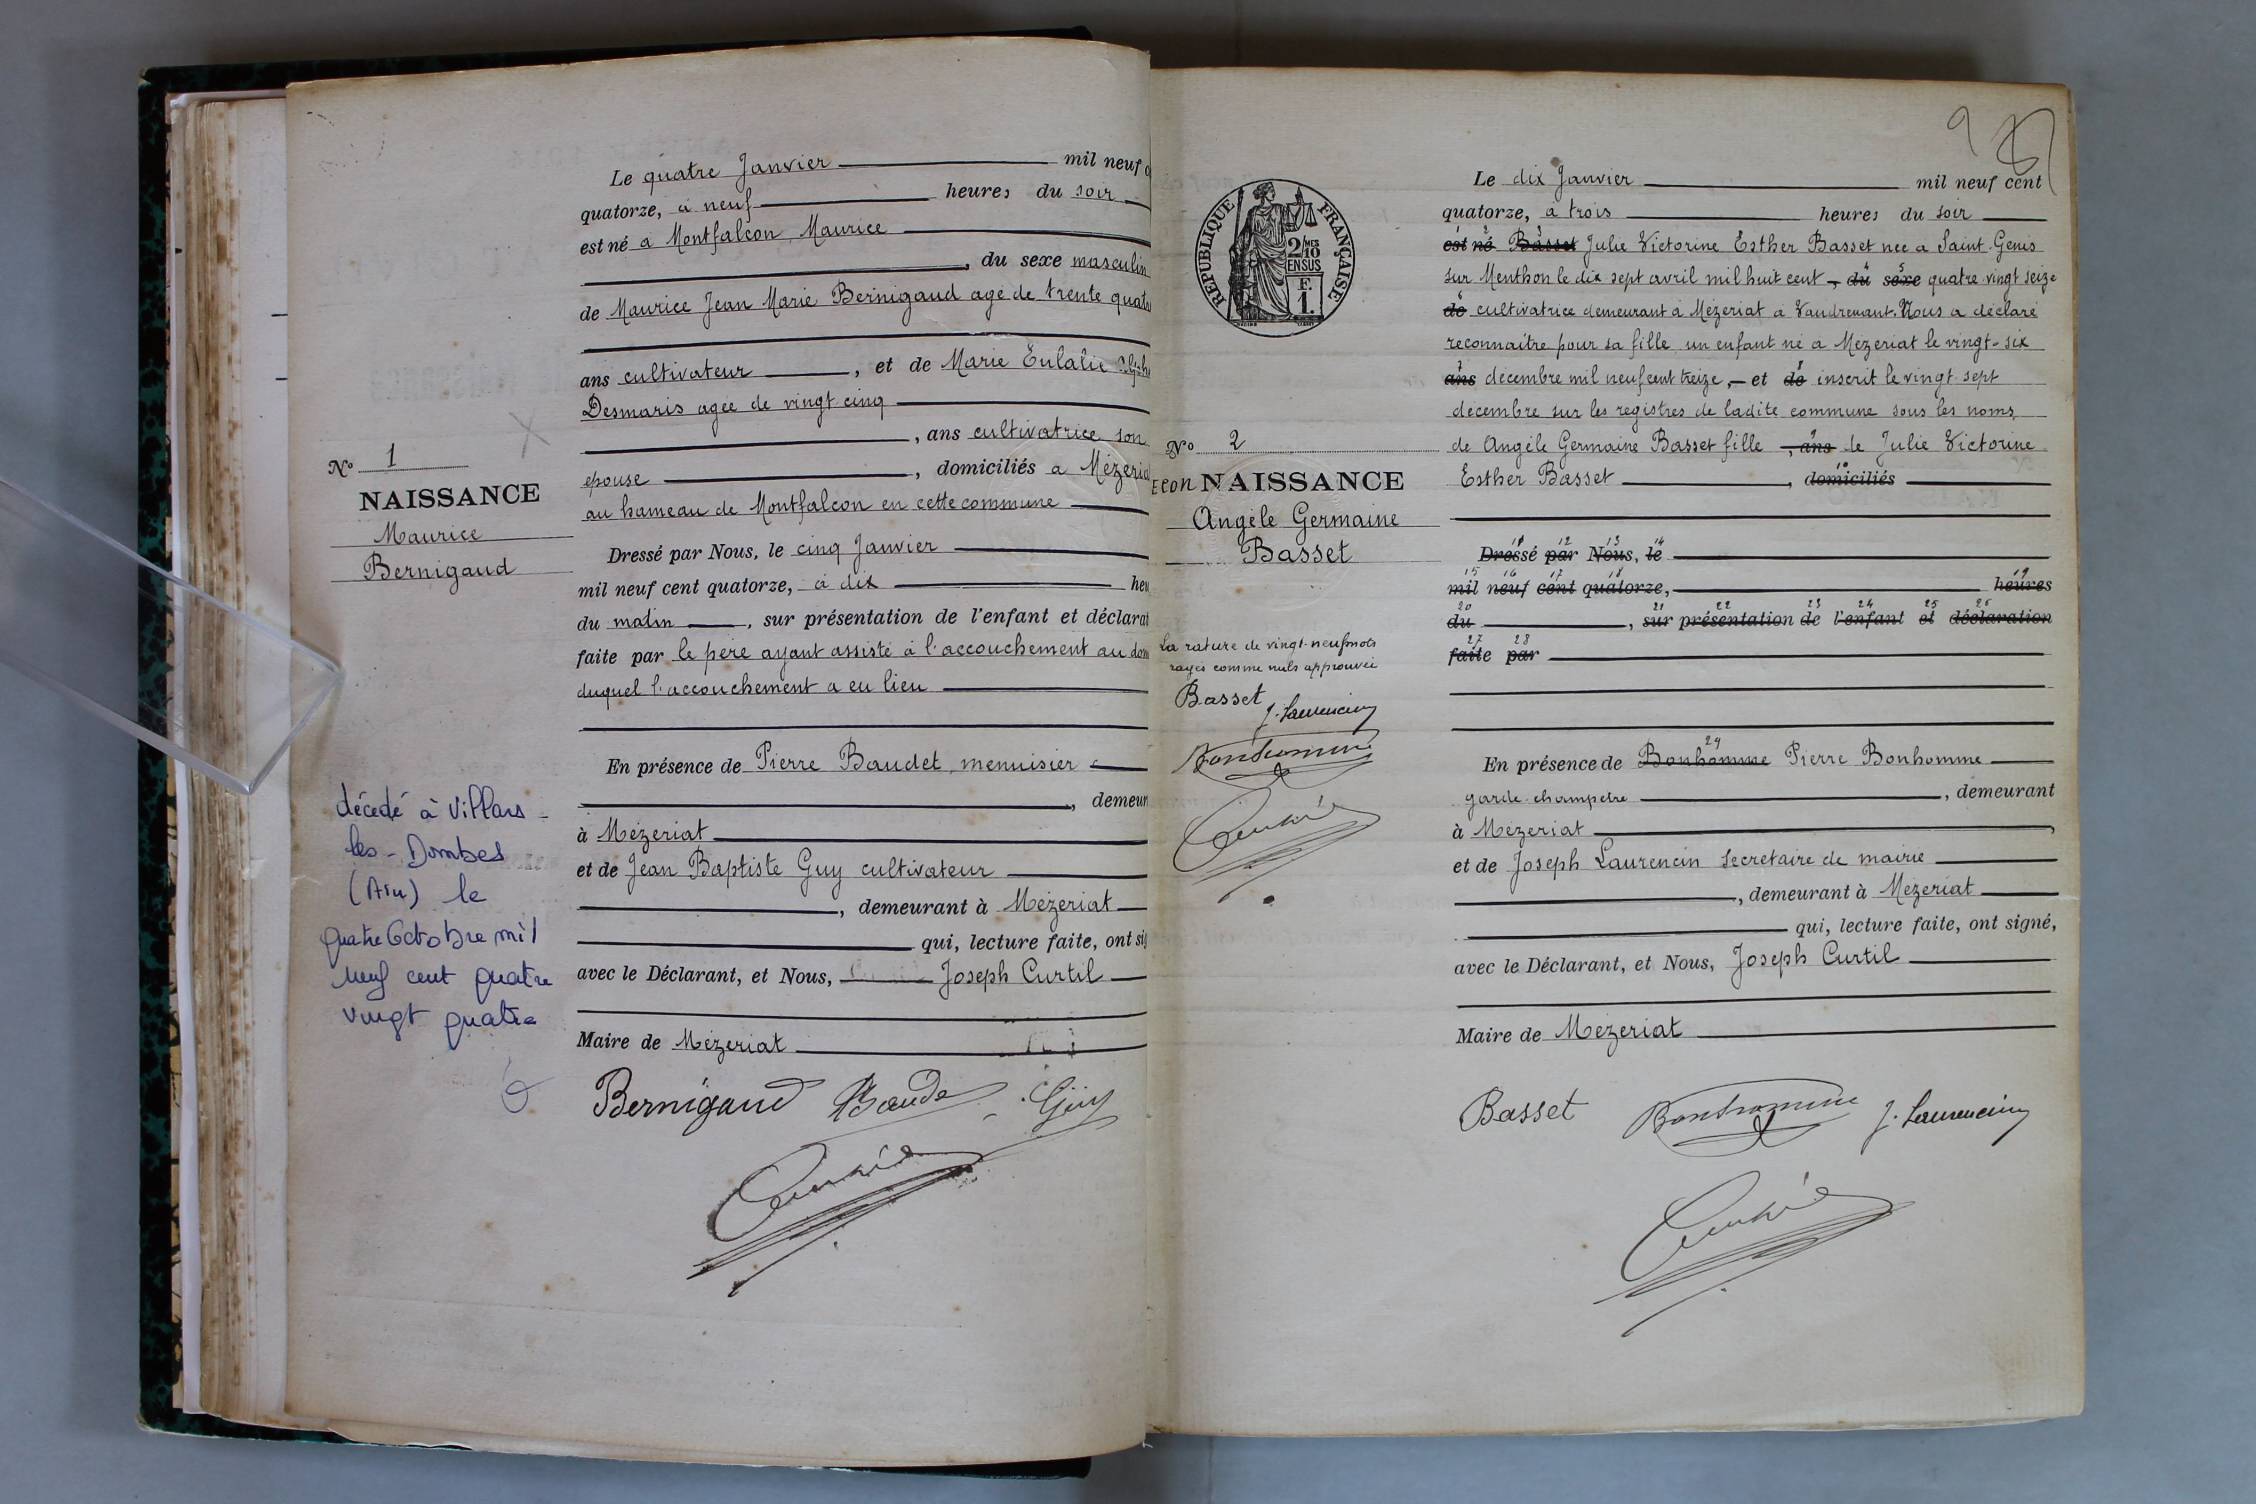 Le quatre Janvier mil neuf
quatorze, à neuf heures du soir
est né a Montfalcon Maurice
, du sexe masculin
de Maurice Jean Marie Bernigaud agé de trente quatre
ans cultivateur , et de Marie Eulalie
Desmaris agée de vingt cinq
, ans cultivatrice son
epouse , domiciliés a Mézeria
au hameau de Montfalcon en cette commune
N° 1
NAISSANCE
Maurice
Bernigaud
Dressé par Nous, le cinq Janvier
mil neuf cent quatorze, à dix heu
du matin , sur présentation de l'enfant et déclarat
faite par le père ayant assisté à l'accouchement au dom
duquel l'accouchement a eu lieu
En présence de Pierre Baudet menuisier
, demeur
à Mézeriat
et de Jean Baptiste Guy cultivateur
, demeurant à Mézeriat
qui, lecture faite, ont sig
avec le Déclarant, et Nous, Joseph Curtil
Maire de Mézeriat
décédé à Villars
les-Dombes
(Ain) le
quatre Octobre mil
neuf cent quatre
vingt quatre
Bernigaud Baude Guy
RÉPUBLIQUE FRANÇAISE
2/10 MES
EN SUS
F.
1.
Le dix Janvier mil neuf cent
quatorze, à trois heures du soir
1 2 3
est né Basset Julie Victorine Esther Basset née a Saint Genis
sur Menthon le dix sept avril mil huit cent , du sexe quatre vingt seize
de cultivatrice demeurant à Mézeriat à Vaudrenant. Nous a déclaré
reconnaitre pour sa fille un enfant né a Mézeriat le vingt-six
ans décembre mil neuf cent treize, et de inscrit le vingt sept
décembre sur les registres de ladite commune sous les noms
de Angèle Germaine Basset fille , ans de Julie Victorine
Esther Basset , domiciliés
N° 2
RECONNAISSANCE
Angèle Germaine
Basset
11 12 13 14
Dressé par Nous, le
15 16 17 18 19
mil neuf cent quatorze, heures
20 21 22 23 24 25 26
du , sur présentation de l'enfant et déclaration
27 28
faite par
La rature de vingt-neuf mots
rayés comme nuls approuvée
Basset
J. Laurencin
Bonhomme
29
En présence de Bonhomme Pierre Bonhomme
garde-champetre , demeurant
à Mézeriat
et de Joseph Laurencin secretaire de mairie
, demeurant à Mézeriat
qui, lecture faite, ont signé,
avec le Déclarant, et Nous, Joseph Curtil
Maire de Mézeriat
Basset Bonhomme J. Laurencin